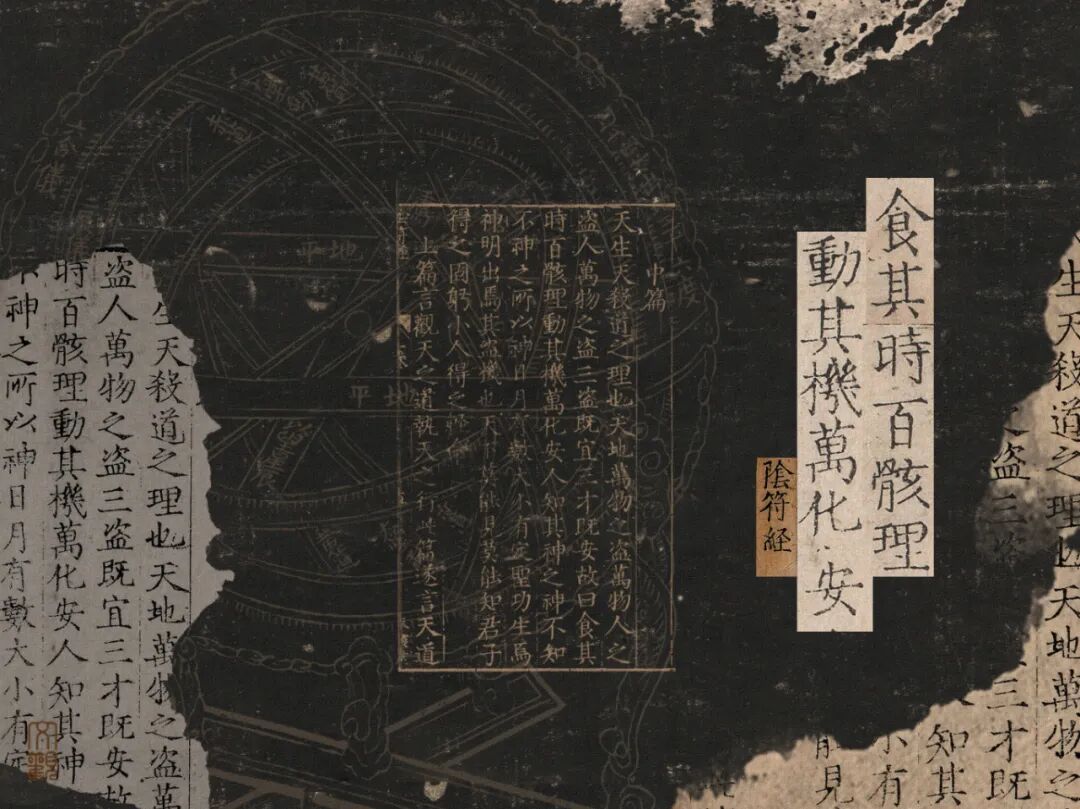 食其時百骸理
動其機萬化安
陰符経
中篇
天生天殺道之理也天地萬物之盜萬物人之
盜人萬物之盜三盜既宜三才既安故曰食其
時百骸理動其機萬化安人知其神之神不知
不神之所以神日月有數大小有定聖功生焉
神明出焉其盜機也天下莫能見莫能知君子
得之固窮小人得之輕命
上篇言觀天之道執天之行此篇遂言天道
生天殺道之理也天地萬物之盜萬
盜人萬物之盜三盜既宜三才既安故
時百骸理動其機萬化安人知其神
不神之所以神日月有數大小有定
生天殺道之理也天地萬物之
盜三
三才既
知其
小有
能見
平地
平地